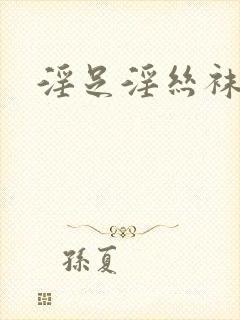 淫足淫丝袜
孫夏